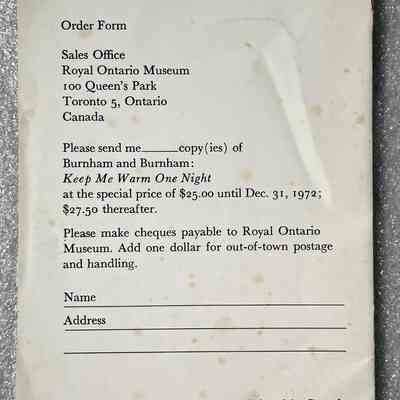 Order Form
Sales Office
Royal Ontario Museum
100 Queen's Park
Toronto 5, Ontario
Canada
Please send me_____copy(ies) of
Burnham and Burnham:
Keep Me Warm One Night
at the special price of $25.00 until Dec. 31, 1972;
$27.50 thereafter.
Please make cheques payable to Royal Ontario
Museum. Add one dollar for out-of-town postage
and handling.
Name
Address